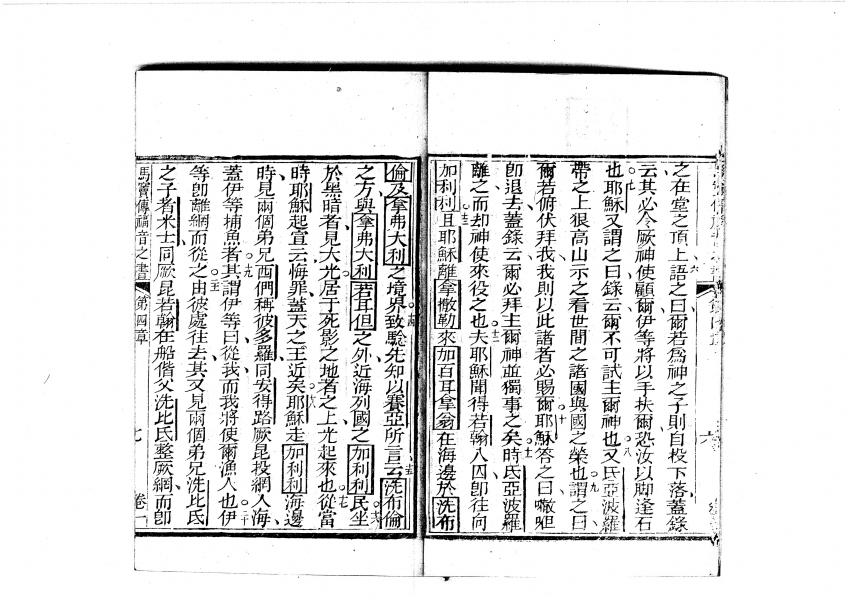 之在堂之頂上語之曰爾若為神之子則自投下落蓋錄
云其必令厥神使顧爾伊等將以手扶爾恐汝以脚逢石
也耶穌又謂之曰錄云爾不可試主爾神也又氐亞波羅
帶之上狠高山示之看世間之諸國與國之榮也謂之曰
爾若俯伏拜我我則以此諸者必賜爾耶穌答之曰𠾐呾
卽退去蓋錄云爾必拜主爾神並獨事之矣時氐亞波羅
離之而却神使來役之也夫耶穌聞得若翰入囚卽往向
加利利且耶穌離拿撒勒來加百耳拿翁在海邊於洗布
倫及拿弗大利之境界致驗先知以賽亞所言云洗布倫
之方與拿弗大利若耳但之外近海列國之加利利民坐
於黑暗者見大光居于死影之地者之上光起來也從當
時耶穌起宣云悔罪蓋天之王近矣耶穌走加利利海邊
時見兩個弟兄西們稱彼多羅同安得路厥昆投網入海
蓋伊等捕魚者其謂伊等曰從我而我將使爾漁人也伊
等卽離網而從之由彼處往去其又見兩個弟兄洗比氐
之子者米士同厥昆若翰在船偕父洗比氐整厥網而卽
馬竇傳福音之書 第四章 七 卷一